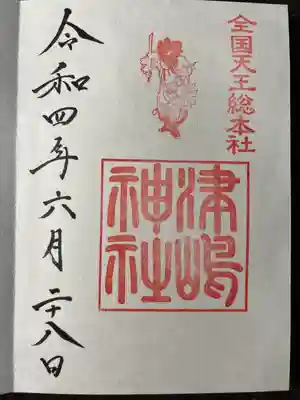 全国天王総本社
津嶋
神社
令和四年六月二十八日